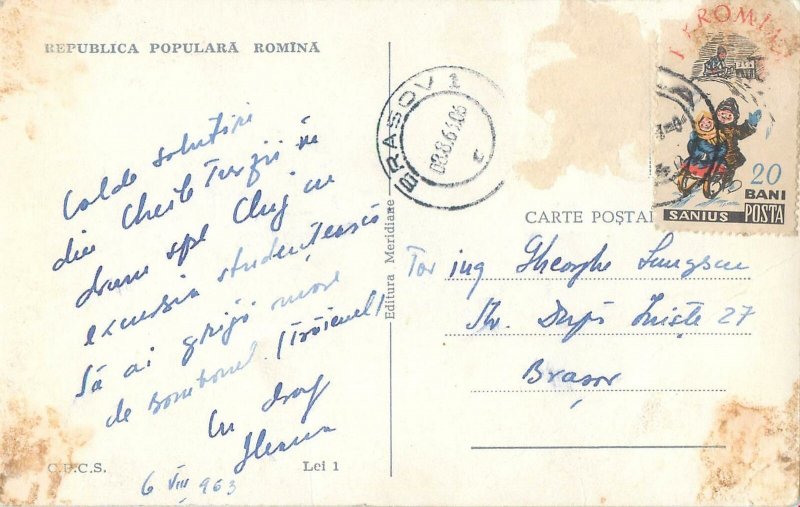 REPUBLICA POPULARĂ ROMÎNĂ
Calde salutări
din Cheile Turzii în
drum spre Cluj cu
excursia studențească
Să ai grijă mare
de Bombonel
Cu drag
Ileana
C.P.C.S.
Lei 1
6 VIII 963
Editura Meridiane
BRAȘOV 1
CARTE POȘTAL
Tov ing Gheorghe
Str. După Iniște 27
Brașov
20
BANI
SANIUS
POSTA